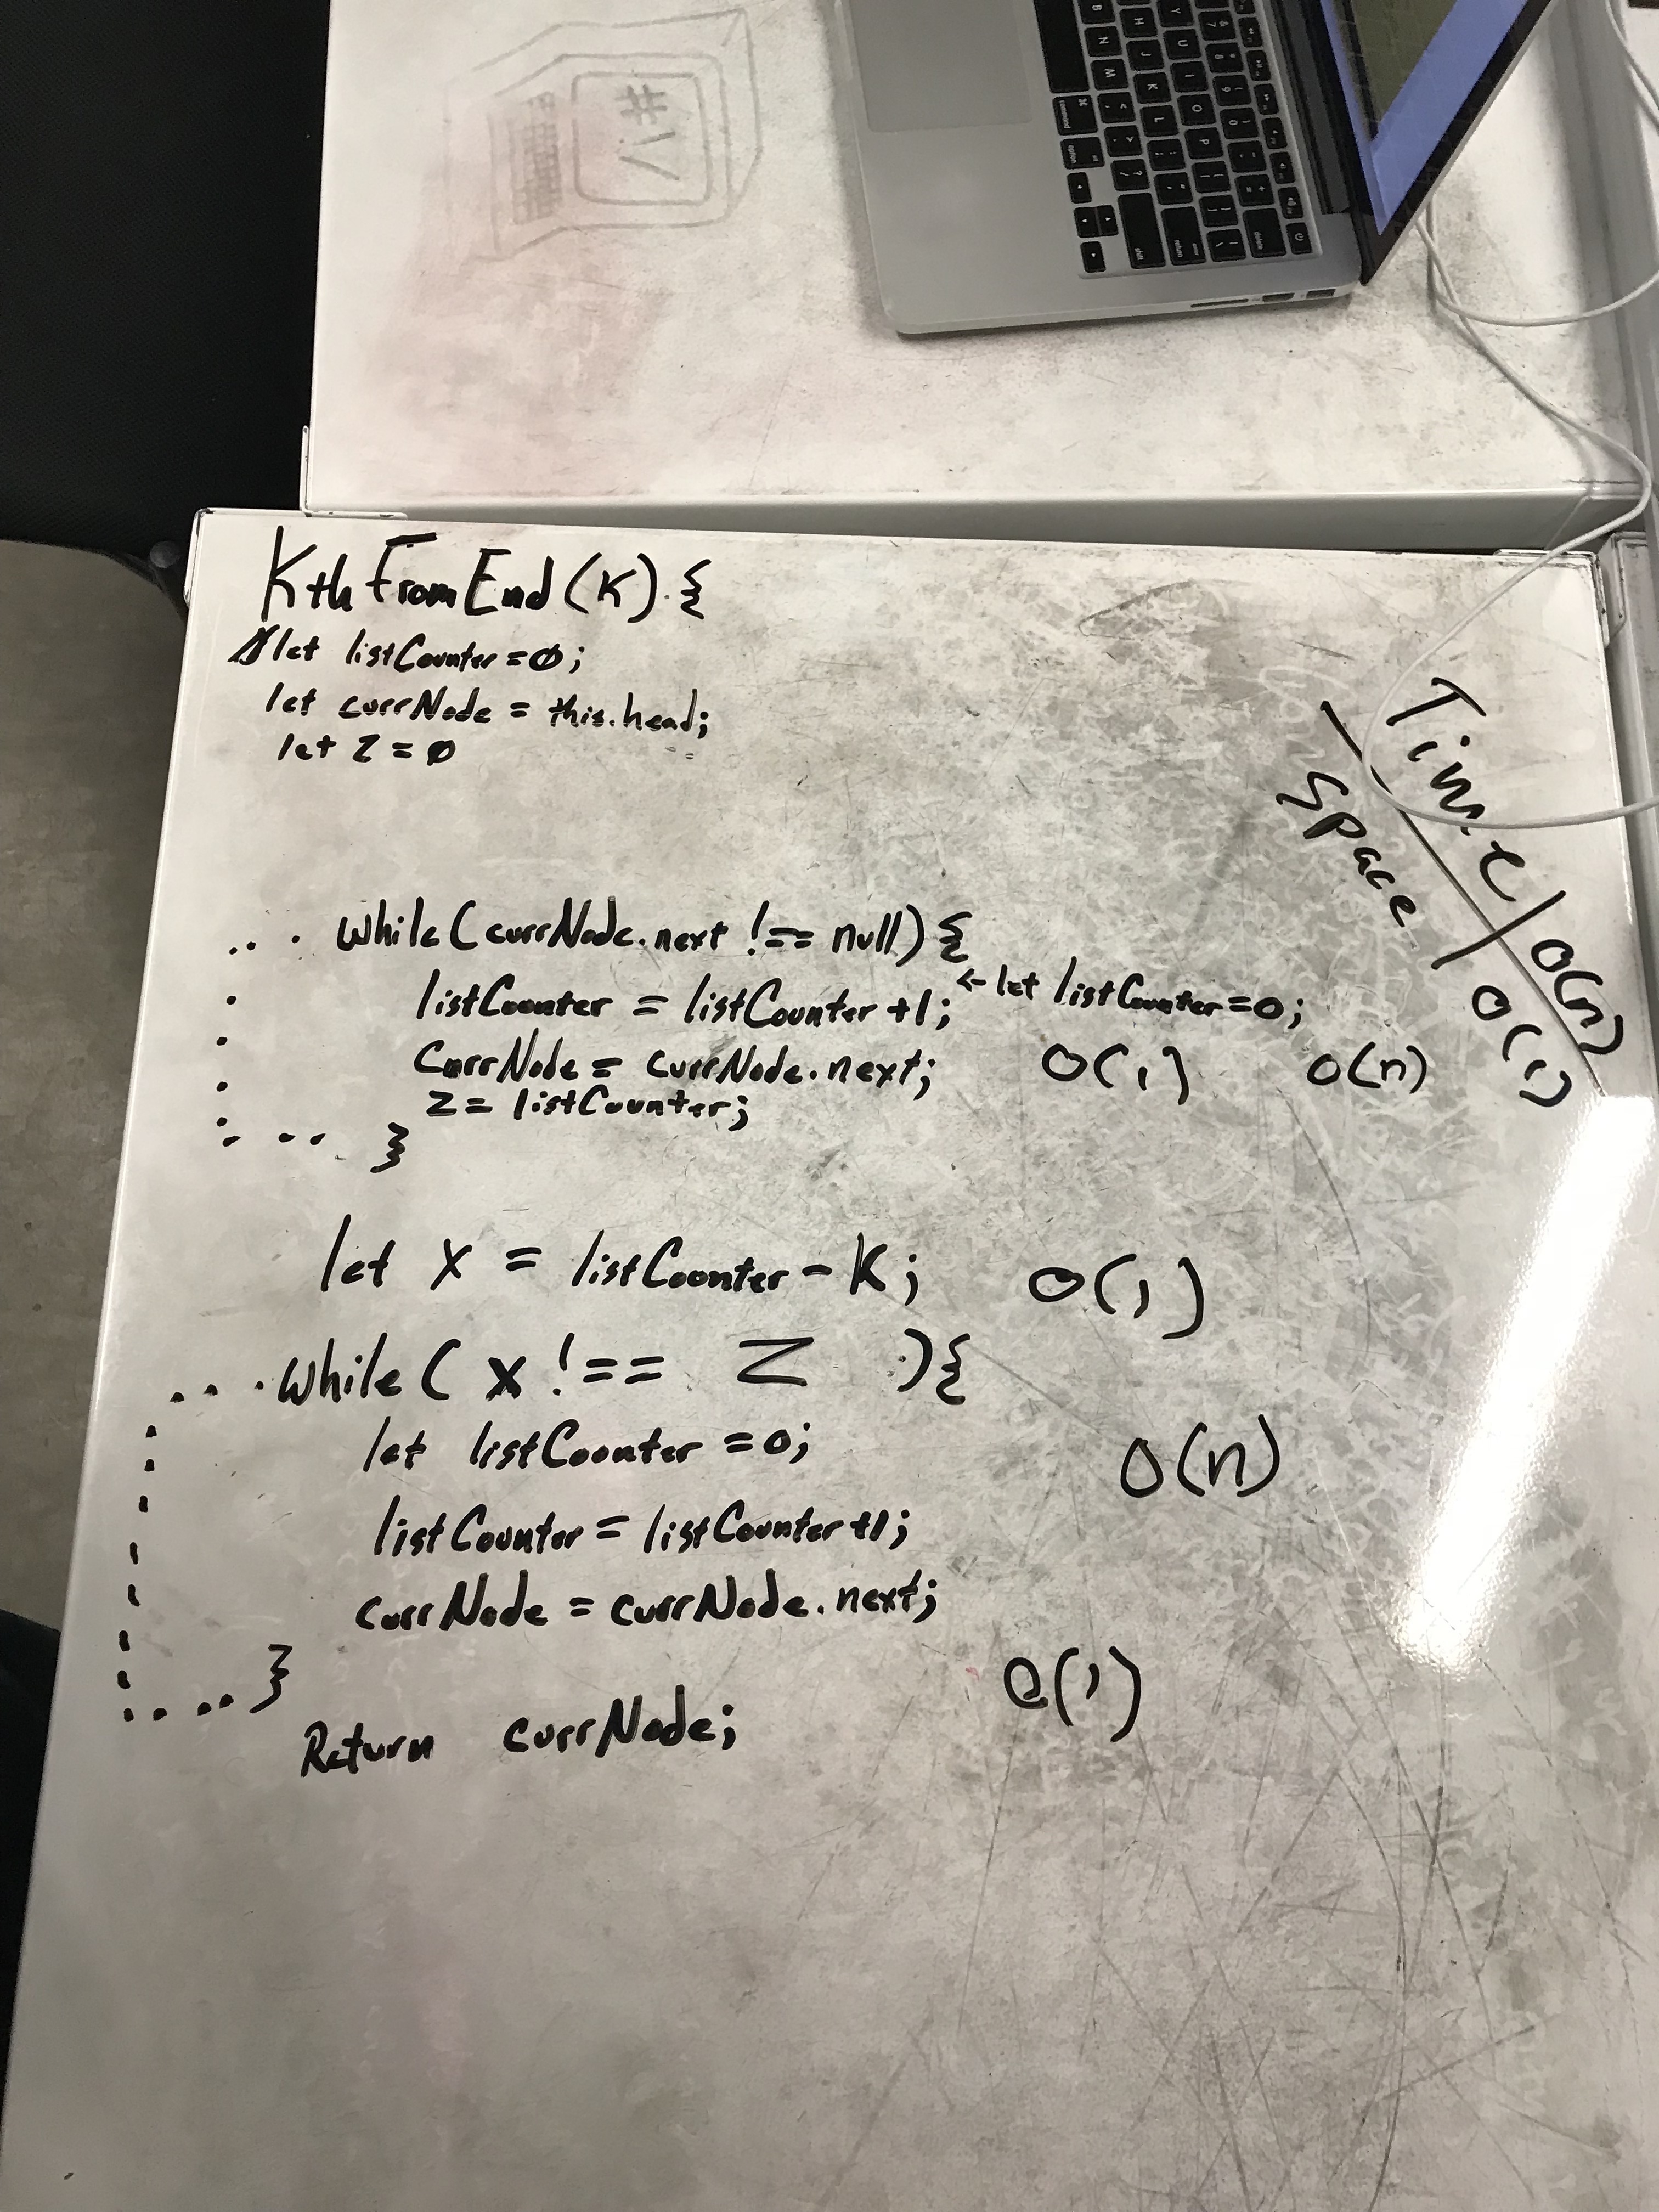 #!/
KthFromEnd(K){
let listCounter=0;
let currNode = this.head;
let Z = 0
while(currNode.next !== null){
listCounter = listCounter+1; <- let listCounter=0;
currNode = currNode.next; O(1) O(n)
Z = listCounter;
}
let X = listCounter - K; O(1)
while( X !== Z ){
let listCounter =0; O(n)
listCounter = listCounter+1;
currNode = currNode.next;
} O(1)
Return currNode;
Time | O(n)
Space | O(1)